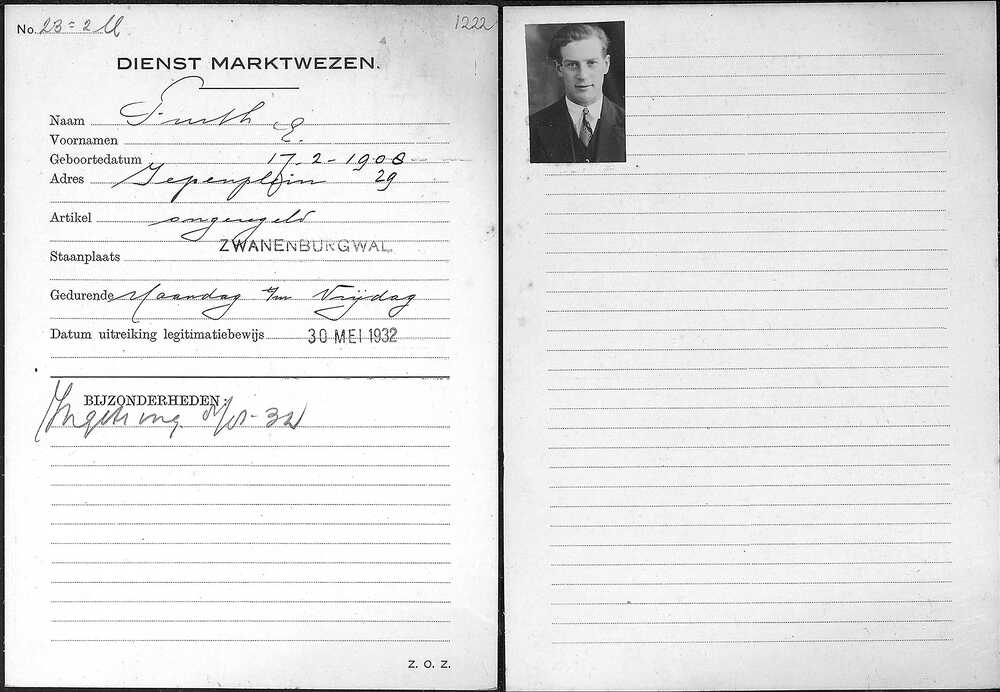 No. 23=2 M 1222
DIENST MARKTWEZEN.
Naam Smith
Voornamen E.
Geboortedatum 17-2-1908
Adres Iepenplein 29
Artikel ongeregeld
ZWANENBURGWAL
Staanplaats
Gedurende Maandag t/m Vrijdag
Datum uitreiking legitimatiebewijs 30 MEI 1932
BIJZONDERHEDEN:
32
Z. O. Z.